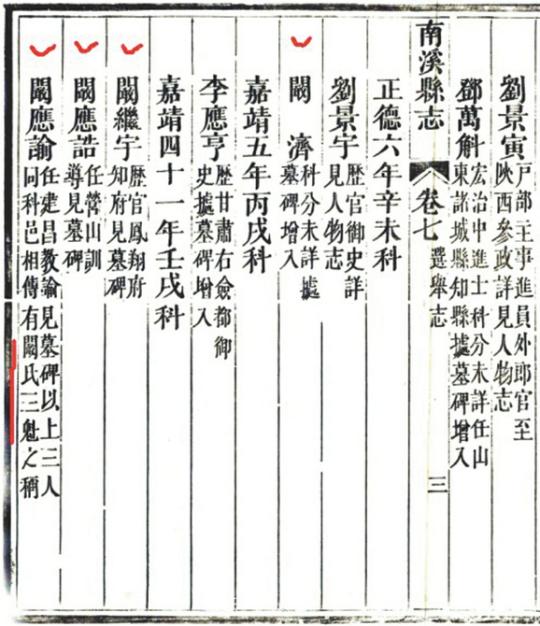 劉景寅 戶部主事進員外郎官至陝西參政詳見人物志
鄧萬斛 宏治中進士科分未詳任山東諸城縣知縣據墓碑增入
南溪縣志 卷七 選舉志 三
正德六年辛未科
劉景宇 歷官御史詳見人物志
闞 濟 科分未詳據墓碑增入
嘉靖五年丙戌科
李應亨 歷甘肅右僉都御史據墓碑增入
嘉靖四十一年壬戌科
闞繼宇 歷官鳳翔府知府見墓碑
闞應誥 任營山訓導見墓碑
闞應諭 任建昌教諭見墓碑以上三人同科邑相傳有闞氏三魁之稱